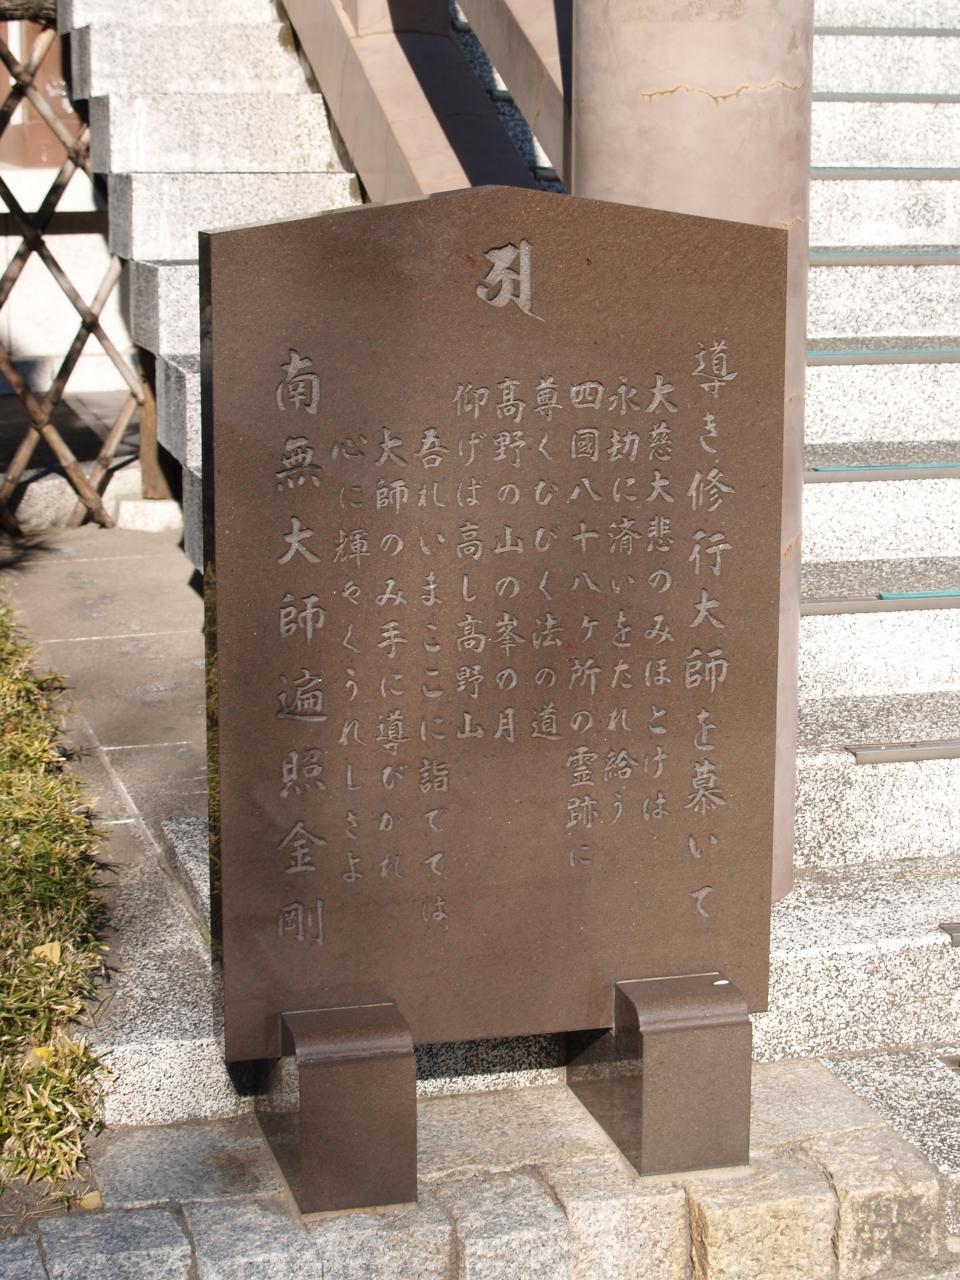 導き修行大師を慕いて
大慈大悲のみほとけは
永劫に済いをたれ給う
四國八十八ヶ所の霊跡に
尊くむびく法の道
髙野の山の峯の月
仰げば高し高野山
吾れいまここに詣でては
大師のみ手に導びかれ
心に輝やくうれしさよ
南無大師遍照金剛